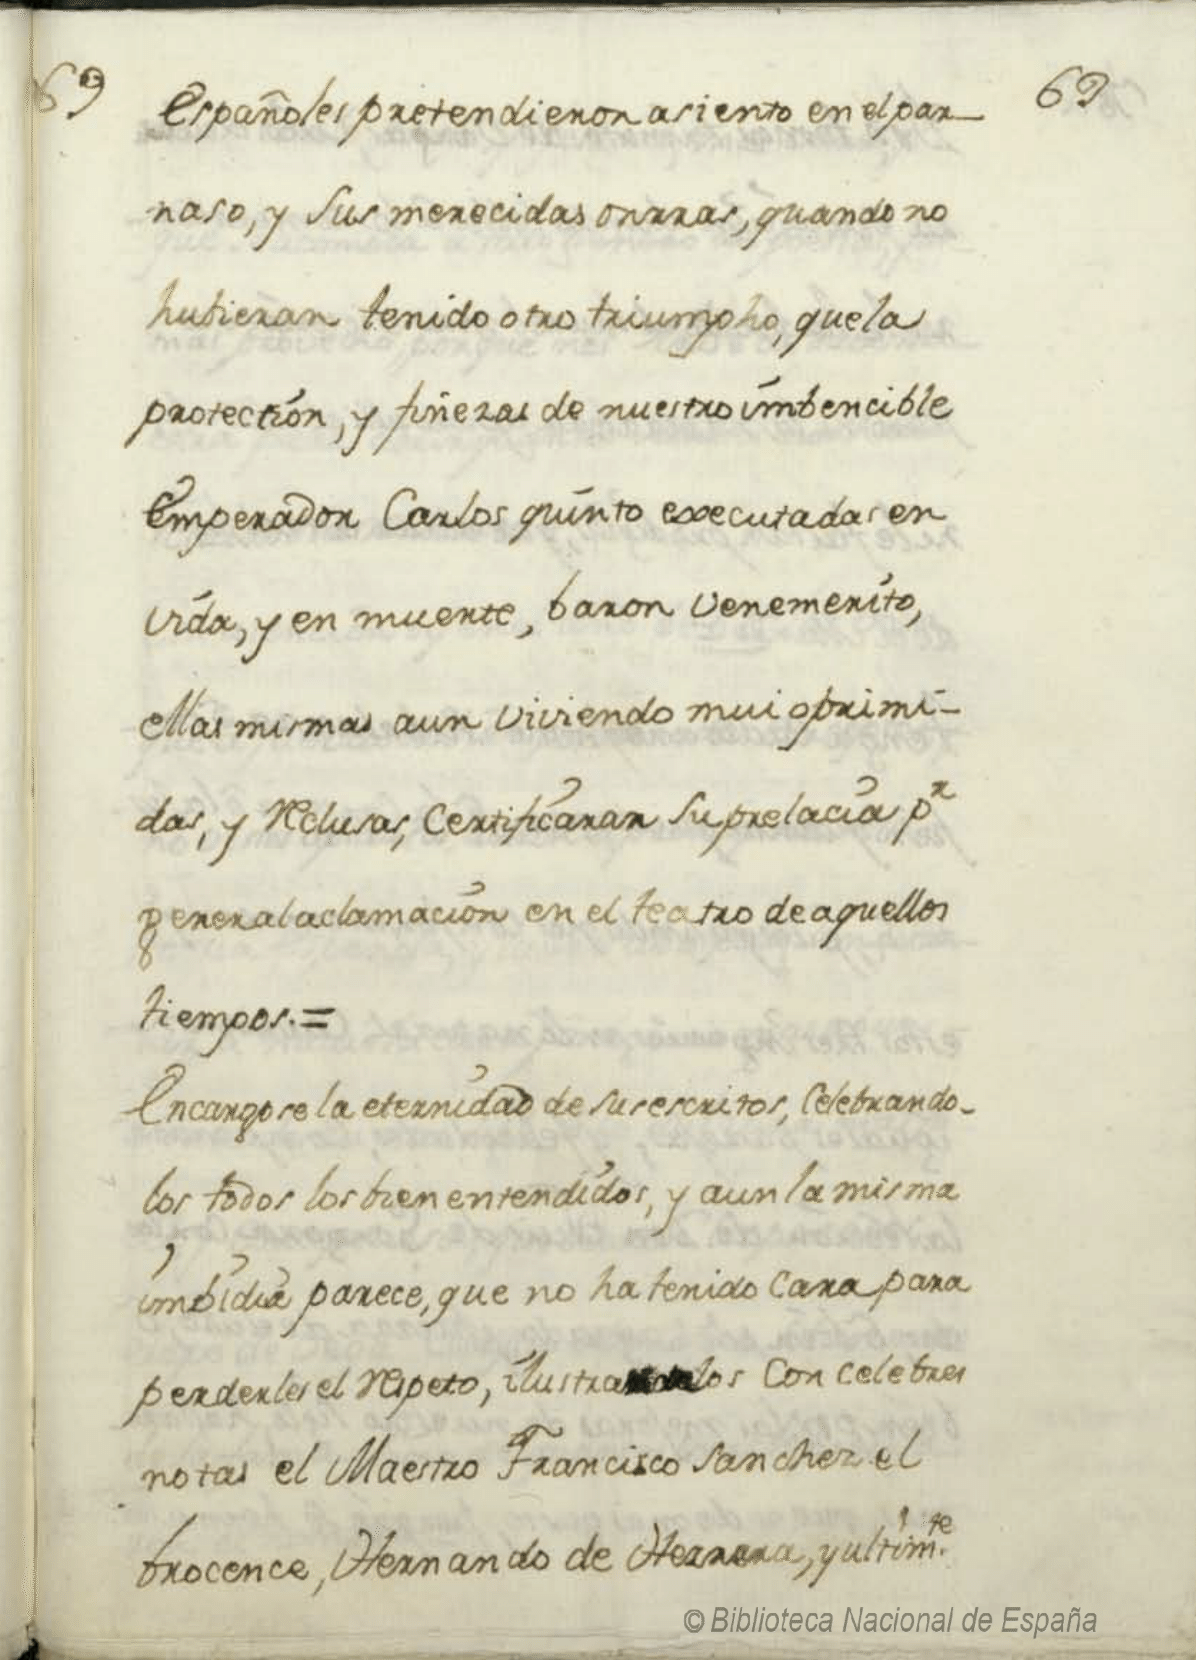 69 69
Españoles pretendieron asiento en el par-
naso, y sus merecidas onrras, quando no
hubieran tenido otro triumpho, que la
protectión, y finezas de nuestro imbencible
Emperador Carlos quinto executadas en
vida, y en muerte, baron venemerito,
ellas mismas aun viviendo mui oprimi-
das, y reclusas, certificaran su prelacia pr
general aclamacion en el teatro de aquellos
tiempos.=
Encargose la eternidad de sus escritos, celebrando-
los todos los bien entendidos, y aun la misma
imbidia parece, que no ha tenido cara para
perderles el respeto, ilustrandolos con celebres
notas el Maestro Francisco Sanchez el
brocence, Hernando de Herrera, y ultimte.
© Biblioteca Nacional de España